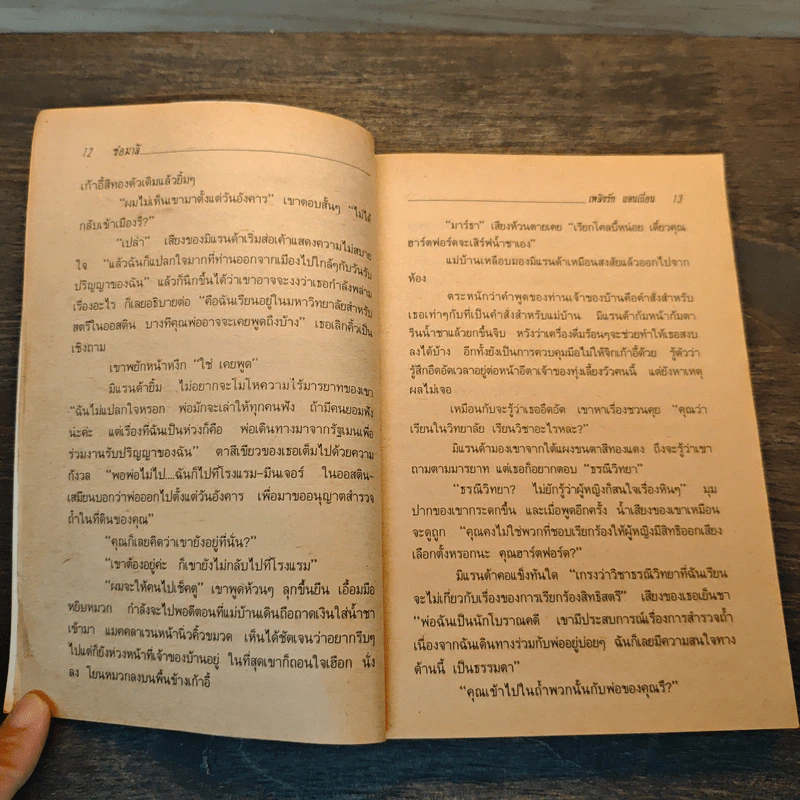 12 ช่อมาลี
เก้าอี้สีทองตัวเดิมแล้วยิ้มๆ
“ผมไม่เห็นเขามาตั้งแต่วันอังคาร” เขาตอบสั้นๆ “ไม่ได้
กลับเข้าเมืองรึ?”
“เปล่า” เสียงของมิแรนด้าเริ่มส่อเค้าแสดงความไม่สบาย
ใจ “แล้วฉันก็แปลกใจมากที่ท่านออกจากเมืองไปใกล้ๆกับวันรับ
ปริญญาของฉัน” แล้วก็นึกขึ้นได้ว่าเขาอาจจะงงว่าเธอกำลังพล่าม
เรื่องอะไร ก็เลยอธิบายต่อ “คือฉันเรียนอยู่ในมหาวิทยาลัยสำหรับ
สตรีในออสติน บางทีคุณพ่ออาจจะเคยพูดถึงบ้าง” เธอเลิกคิ้วเป็น
เชิงถาม
เขาพยักหน้าหงึก “ใช่ เคยพูด”
มิแรนด้ายิ้ม ไม่อยากจะโมโหความไร้มารยาทของเขา
“ฉันไม่แปลกใจหรอก พ่อมักจะเล่าให้ทุกคนฟัง ถ้ามีคนยอมฟัง
น่ะค่ะ แต่เรื่องที่ฉันเป็นห่วงก็คือ พ่อเดินทางมาจากรัฐเมนเพื่อ
ร่วมงานรับปริญญาของฉัน” ตาสีเขียวของเธอเต็มไปด้วยความ
กังวล “พอพ่อไม่ไป...ฉันก็ไปที่โรงแรม-มีนเจอร์ ในออสติน-
เสมียนบอกว่าพ่อออกไปตั้งแต่วันอังคาร เพื่อมาขออนุญาตสำรวจ
ถ้ำในที่ดินของคุณ”
“คุณก็เลยคิดว่าเขายังอยู่ที่นั่น?”
“เขาต้องอยู่ค่ะ ก็เขายังไม่กลับไปที่โรงแรม”
“ผมจะให้คนไปเช็คดู” เขาพูดห้วนๆ ลุกขึ้นยืน เอื้อมมือ
หยิบหมวก กำลังจะไปพอดีตอนที่แม่บ้านเดินถือถาดเงินใส่น้ำชา
เข้ามา แมคคลาเรนหน้านิ่วคิ้วขมวด เห็นได้ชัดเจนว่าอยากรีบๆ
ไปแต่ก็ยังห่วงหน้าที่เจ้าของบ้านอยู่ ในที่สุดเขาก็ถอนใจเฮือก นั่ง
ลง โยนหมวกลงบนพื้นข้างเก้าอี้
เพลิงรัก แดนเถื่อน 13
“มาร์ธา” เสียงห้วนตายเคย “เรียกโคลบี้หน่อย เดี๋ยวคุณ
ฮาร์ตฟอร์ดจะเสิร์ฟน้ำชาเอง”
แม่บ้านเหลือบมองมิแรนด้าเหมือนสงสัยแล้วออกไปจาก
ห้อง
ตระหนักว่าคำพูดของท่านเจ้าของบ้านคือคำสั่งสำหรับ
เธอเท่าๆกับที่เป็นคำสั่งสำหรับแม่บ้าน มิแรนด้าก้มหน้าก้มตา
รินน้ำชาแล้วยกขึ้นจิบ หวังว่าเครื่องดื่มร้อนๆจะช่วยทำให้เธอสงบ
ลงได้บ้าง อีกทั้งยังเป็นการควบคุมมือไม่ให้จิกเก้าอี้ด้วย รู้ตัวว่า
รู้สึกอึดอัดเวลาอยู่ต่อหน้าอีตาเจ้าของทุ่งเลี้ยงวัวคนนี้ แต่ยังหาเหตุ
ผลไม่เจอ
เหมือนกับจะรู้ว่าเธออึดอัด เขาหาเรื่องชวนคุย “คุณว่า
เรียนในวิทยาลัย เรียนวิชาอะไรหละ?”
มิแรนด้ามองเขาจากใต้แผงขนตาสีทองแดง ถึงจะรู้ว่าเขา
ถามตามมารยาท แต่เธอก็อยากตอบ “ธรณีวิทยา”
“ธรณีวิทยา? ไม่ยักรู้ว่าผู้หญิงก็สนใจเรื่องหินๆ” มุม
ปากของเขากระดกขึ้น และเมื่อพูดอีกครั้ง น้ำเสียงของเขาเหมือน
จะดูถูก “คุณคงไม่ใช่พวกที่ชอบเรียกร้องให้ผู้หญิงมีสิทธิออกเสียง
เลือกตั้งหรอกนะ คุณฮาร์ตฟอร์ด?”
มิแรนด้าคอแข็งทันใด “เกรงว่าวิชาธรณีวิทยาที่ฉันเรียน
จะไม่เกี่ยวกับเรื่องของการเรียกร้องสิทธิสตรี” เสียงของเธอเย็นชา
“พ่อฉันเป็นนักโบราณคดี เขามีประสบการณ์เรื่องการสำรวจถ้ำ
เนื่องจากฉันเดินทางร่วมกับพ่ออยู่บ่อยๆ ฉันก็เลยมีความสนใจทาง
ด้านนี้ เป็นธรรมดา”
“คุณเข้าไปในถ้ำพวกนั้นกับพ่อของคุณรึ?”